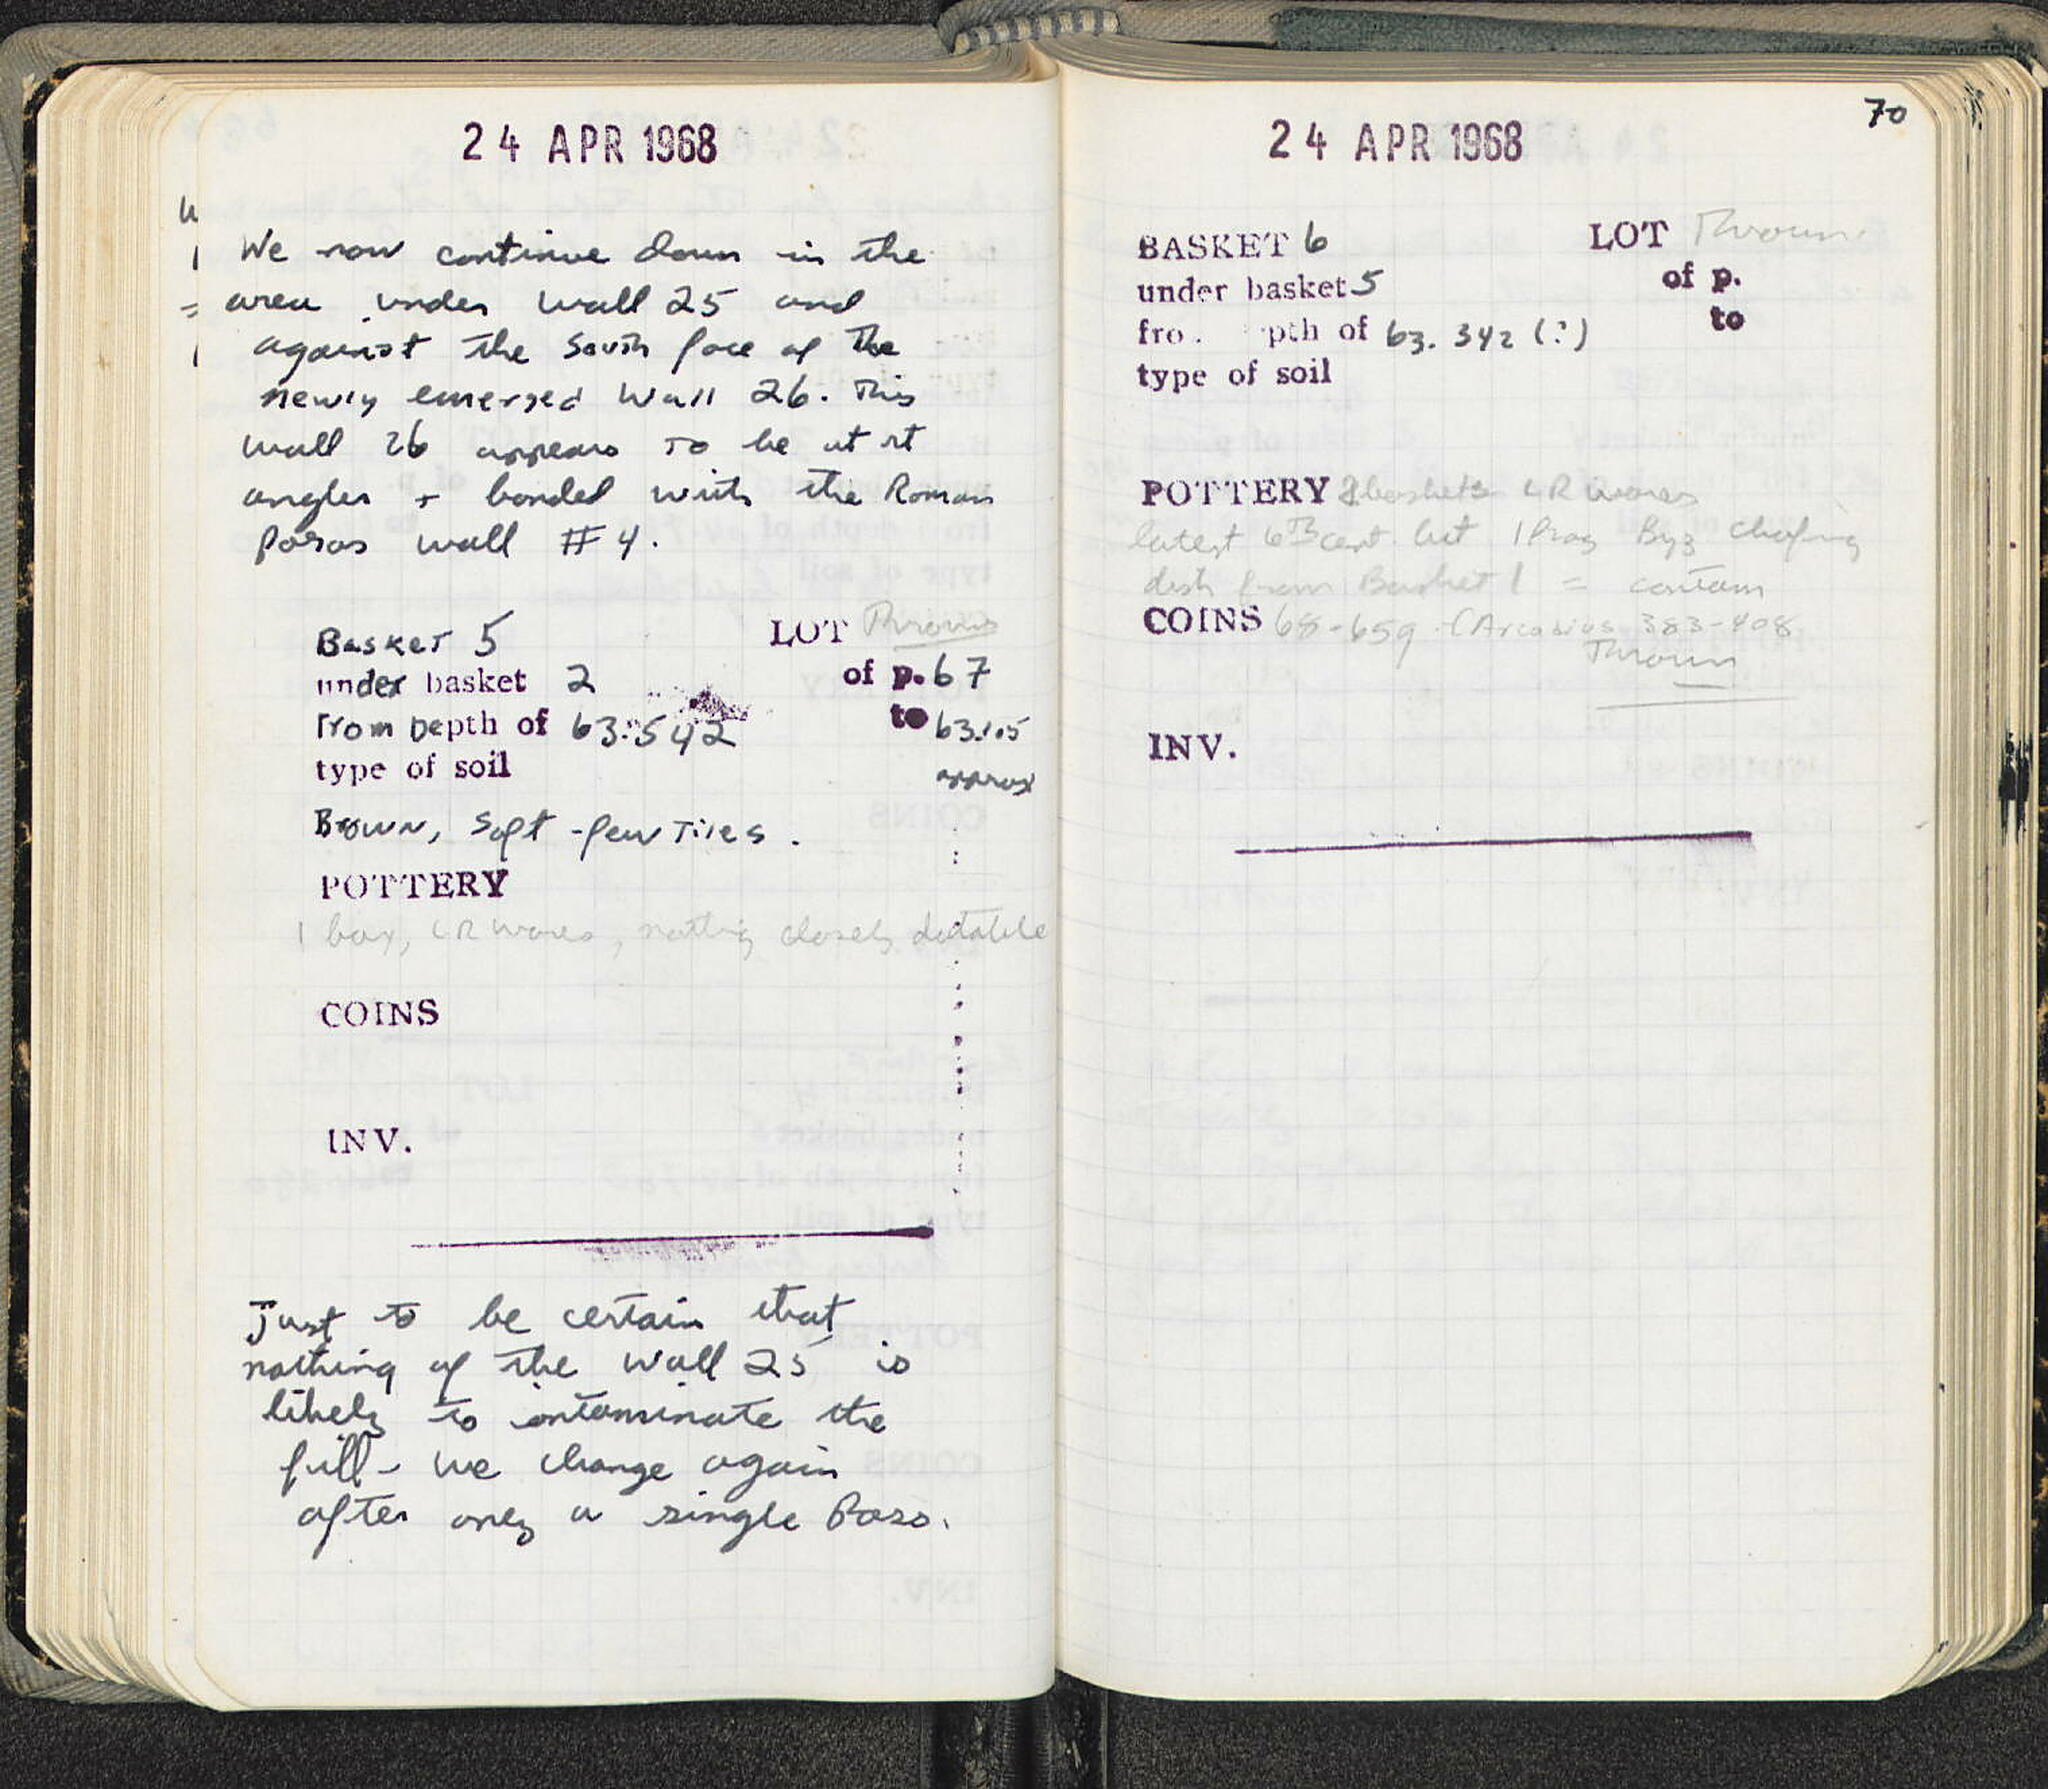 24 APR 1968
We now continue down in the
area under wall 25 and
against the South face of the
newly emerged Wall 26. This
wall 26 appears to be at rt
angles + bonded with the Roman
poros wall #4.
Basket 5 LOT Thrown
under basket 2 of p. 67
from Depth of 63.542 to 63.105
approx
type of soil
Brown, soft - few tiles.
POTTERY
1 box, LR wares, nothing closely datable
COINS
INV.
Just to be certain that
nothing of the wall 25 is
likely to contaminate the
fill - we change again
after only a single Pass.
70
24 APR 1968
BASKET 6 LOT Thrown
under basket 5 of p.
fro. pth of 63.342 (?) to
type of soil
POTTERY 2 baskets LR wares
latest 6th cent. but 1 frag Byz Chafing
dish from Basket 1 = contam
COINS 68-659 - (Arcadius 383-408
Thrown
INV.